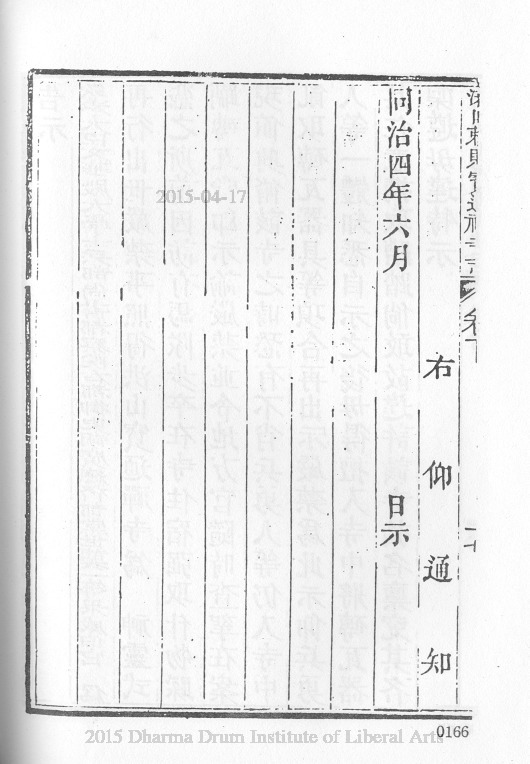 右仰通知
同治四年六月 日示
卷下
2015-04-17
0166
2015 Dharma Drum Institute of Liberal Arts